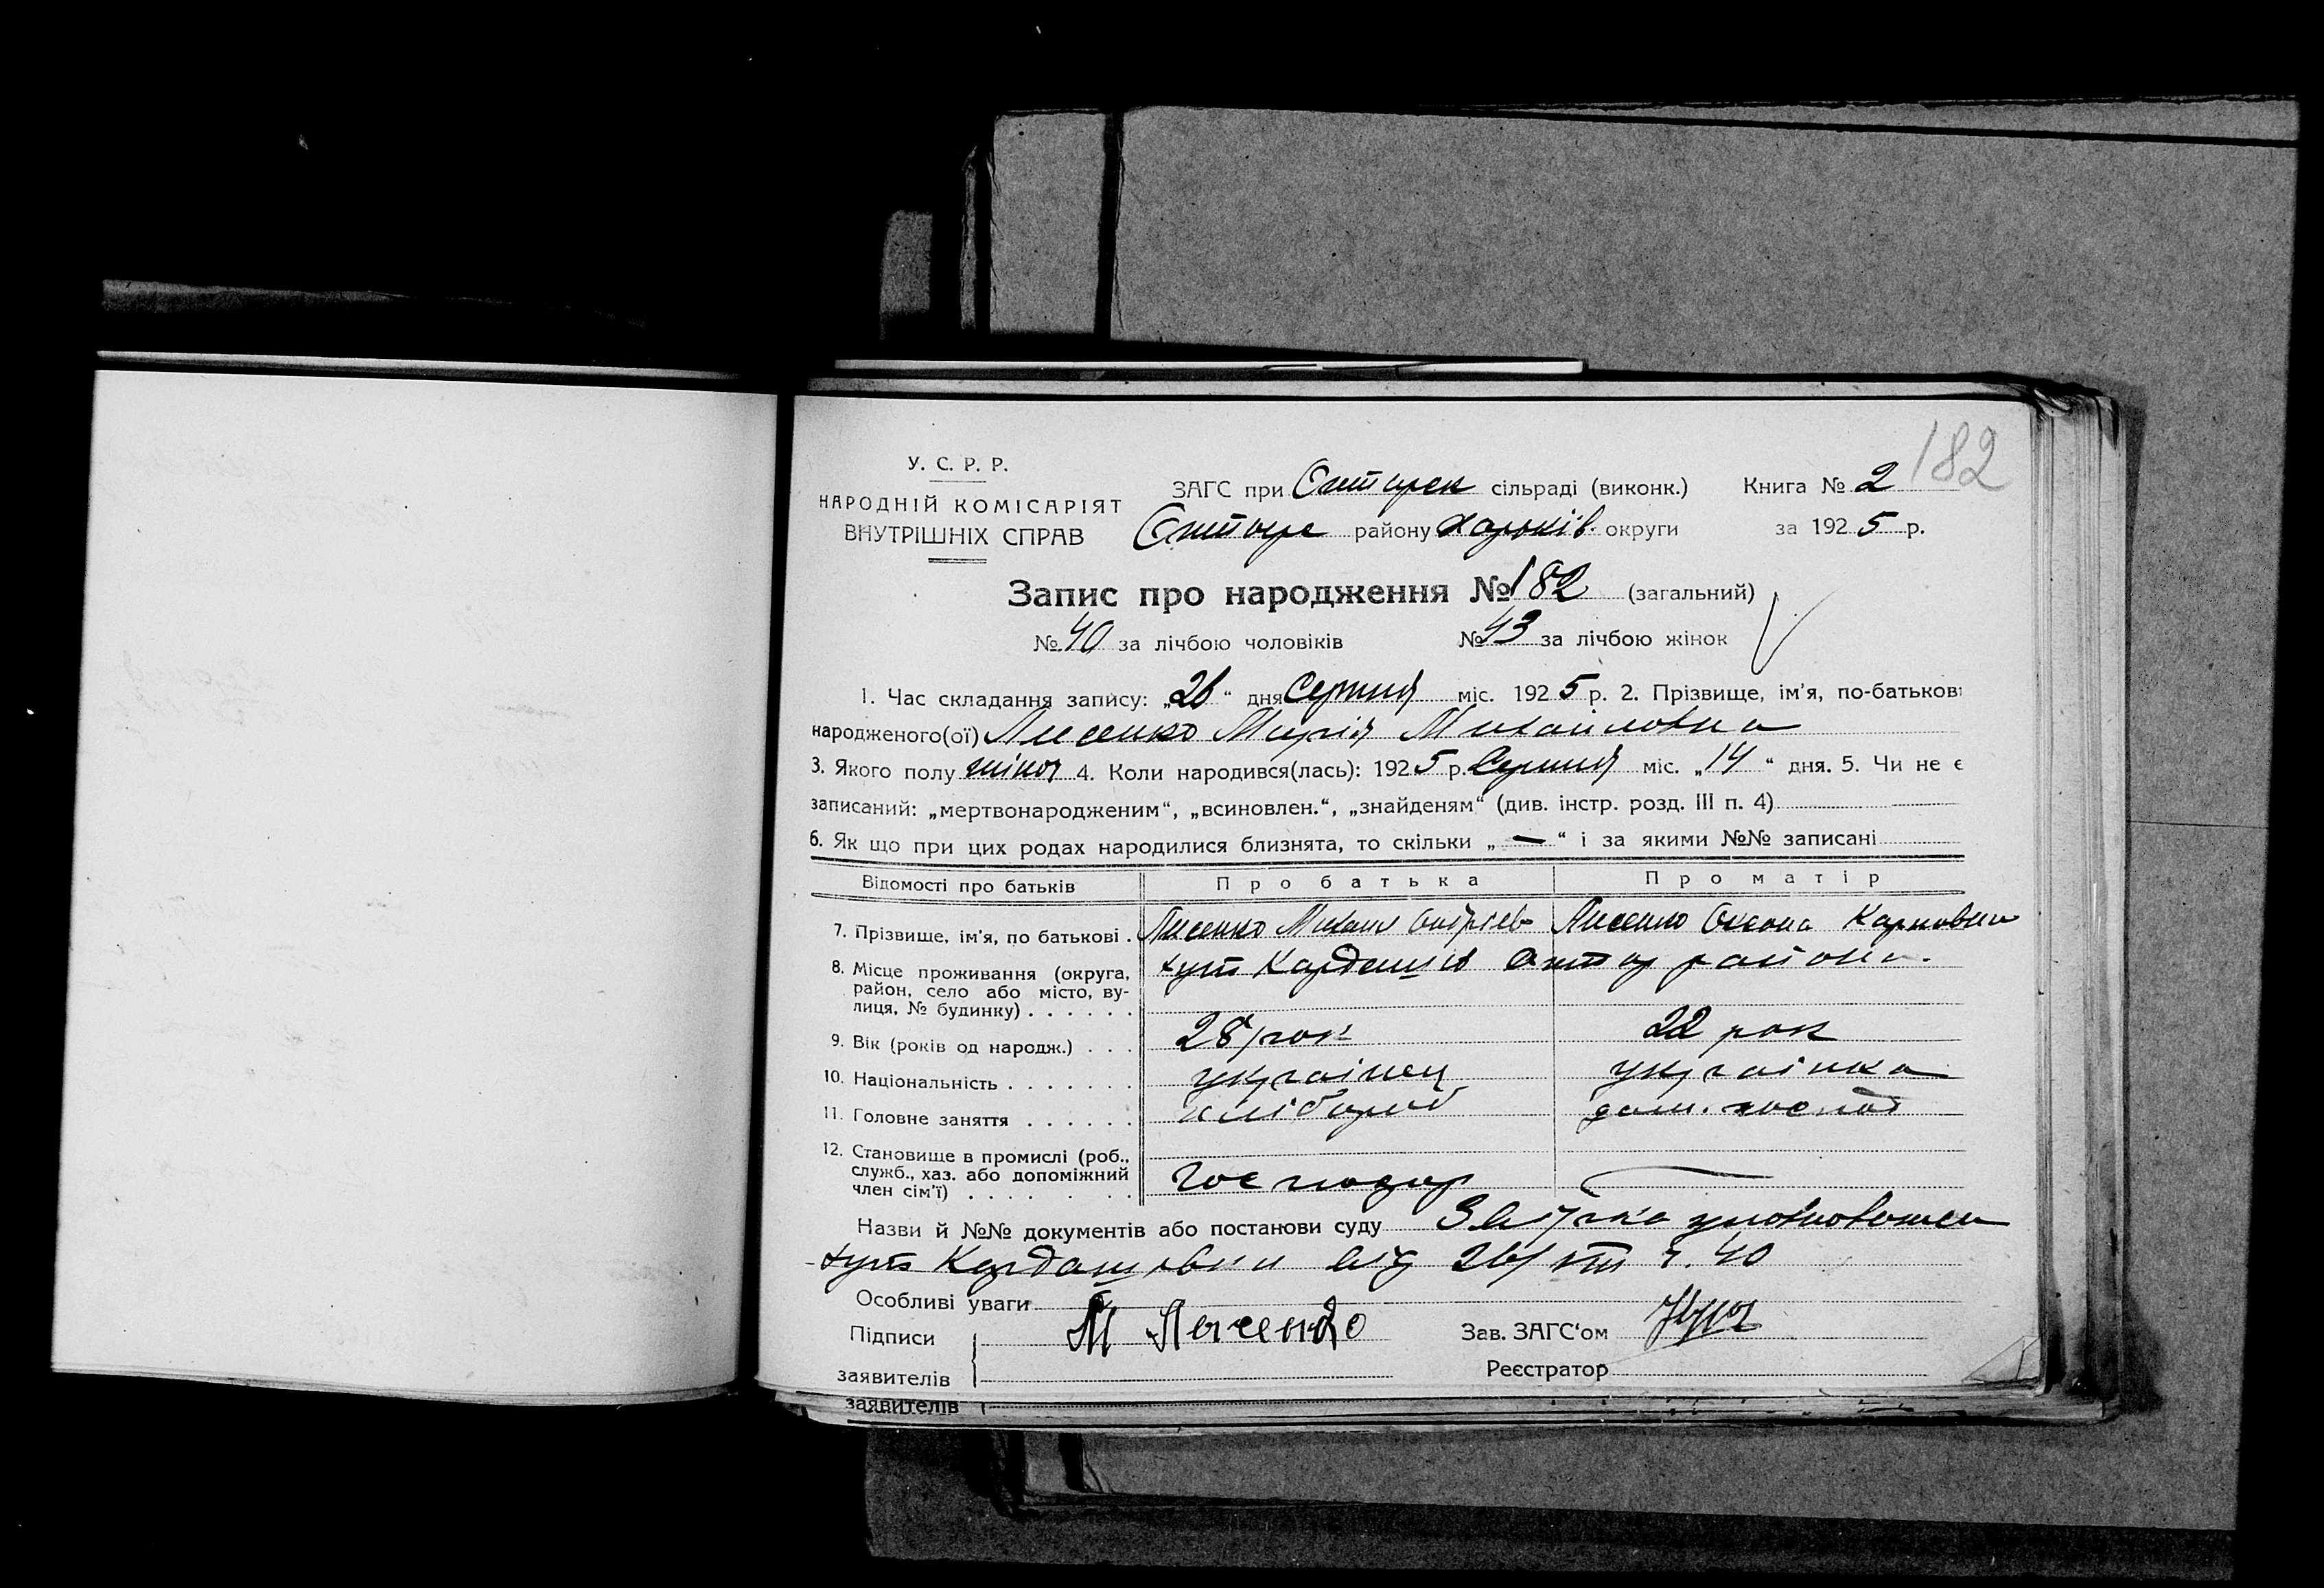 182
У. С. Р. Р.
НАРОДНІЙ КОМІСАРІЯТ
ВНУТРІШНІХ СПРАВ
ЗАГС при сільраді (виконк.) Книга № 2
району Харьків. округи за 1925 р.
Запис про народження № 182 (загальний)
№ 40 за лічбою чоловіків № 43 за лічбою жінок
1. Час складання запису: „26“ дня Серпня міс. 1925 р. 2. Прізвище, ім'я, по-батькові
народженого(ої) Лисенко Марія Михаиловна
3. Якого полу жіноч 4. Коли народився(лась): 1925 р. Серпня міс. „14“ дня. 5. Чи не є
записаний: „мертвонародженим“, „всиновлен.“, „знайденям“ (див. інстр. розд. III п. 4)
6. Як що при цих родах народилися близнята, то скільки „—“ і за якими №№ записані
Відомості про батьків Про батька Про матір
7. Прізвище, ім'я, по батькові . Лисенко Михаил Андріев Лисенко Оксана Карповна
8. Місце проживання (округа, район, село або місто, вулиця, № будинку) . . . . . . хут Кардашів району.
9. Вік (років од народж.) . . . 28 рок 22 рок
10. Національність . . . . . . . українец українка
11. Головне заняття . . . . . . хлібороб дом. господ
12. Становище в промислі (роб., служб., хаз. або допоміжний член сім'ї) . . . . . . . господар —
Назви й №№ документів або постанови суду уповноважен
хут від 26/VIII ч. 40
Особливі уваги
Підписи М Лисенко Зав. ЗАГС'ом
заявителів Реєстратор
заявителів